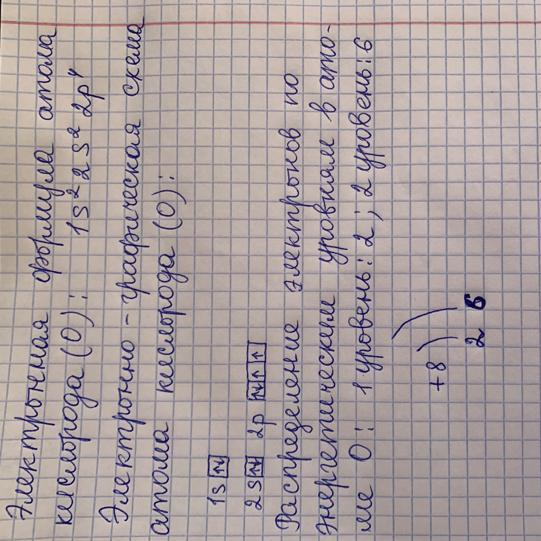 Электронная формула атома
кислорода (O): 1s² 2s² 2p⁴
Электронно-графическая схема
атома кислорода (O):
1s ↑↓
2s ↑↓ 2p ↑↓ ↑ ↑
Распределение электронов по
энергетическим уровням в ато-
ме O: 1 уровень: 2; 2 уровень: 6
+8
2 6